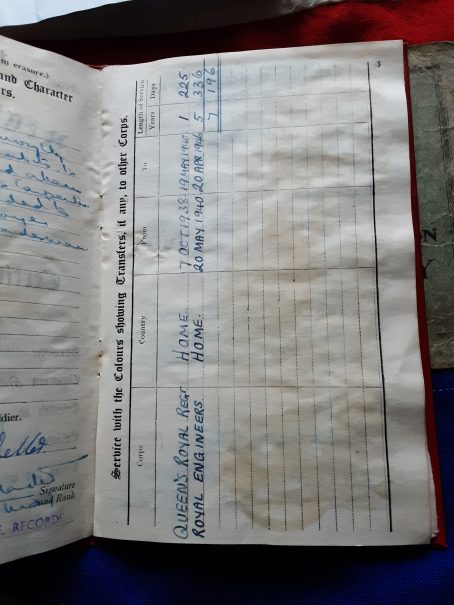 m erasure.)
and Character
rs.
dier.
Signature
and Rank
RECORDS
3
Service with the Colours showing Transfers, if any, to other Corps.
Corps Country From To Length of Service
Years Days
QUEEN'S ROYAL REGT. HOME. 7 OCT 1938 - 19 MAY 1940 1 225
ROYAL ENGINEERS. HOME. 20 MAY 1940 20 APR 1946 5 336
7 196